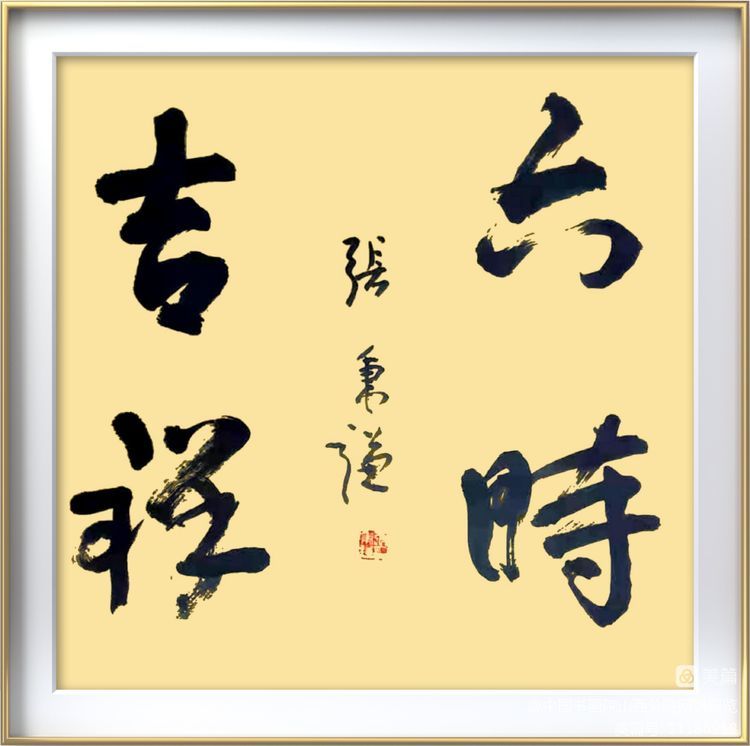 六時
吉祥
張秉謙
美篇